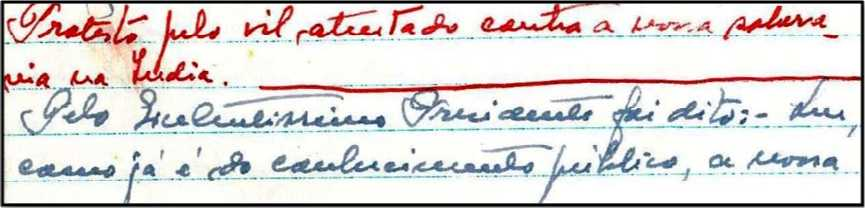 Protesto pelo vil atentado contra a nossa sobera-
nia na India.
Pelo Excelentissimo Presidente foi dito:-
como já é do conhecimento público, a nossa